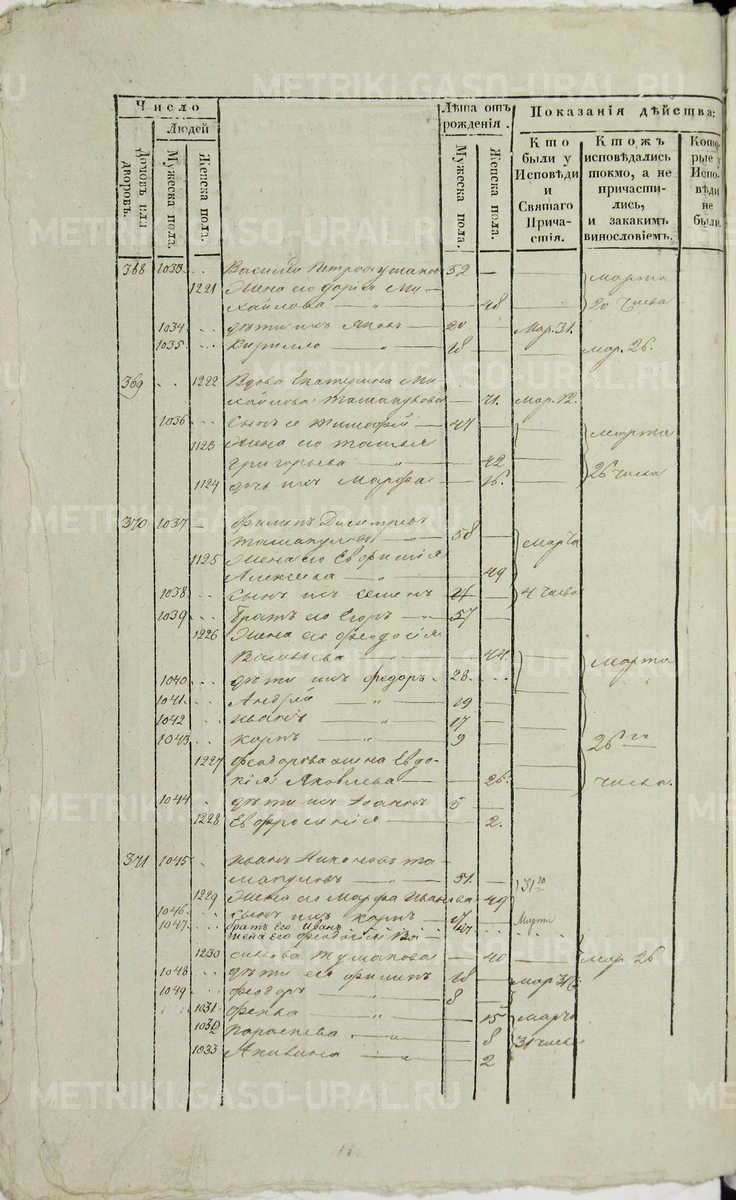 METRIKI.GASO-URAL.RU
Число
Людей
Домовъ или дворовъ.
Мужеска пола.
Женска пола.
Лѣта отъ рожденія.
Мужеска пола.
Женска пола.
Показанія дѣйства:
Кто были у Исповѣди и Святаго Причастія.
Ктожъ исповѣдались токмо, а не причастились, и закакимъ винословіемъ.
Которые у Исповѣди не были.
368 1033. Василій 52 —
1221 Жена его Дарья Ми-
хайлова — 48 Марта 20 числа
1034 дѣти ихъ Яковъ — 20 Мар. 31.
1035 Кирилло — 18 мар. 26.
369 1222 Вдова Екатерина Ми-
хайлова — 71. Мар. 12.
1036 сынъ ея Тимофей — 47 Марта
1123 Жена его Татьяна
Григорьева — 42 26 числа
1124 дочь ихъ Марфа — 16.
370 1037 Филипъ Дмитріевъ
58 Марта
1125 Жена его Евфимія
Алексѣева — 49
1038 сынъ ихъ Семенъ 21 4 числа
1039 Братъ его Егоръ — 57
1226 Жена его Феодосія
Васильева — 44. Марта
1040 дѣти ихъ Федоръ 28
1041 Андрей — 19
1042 Иванъ — 17
1043 Карпъ — 9 26го
1227 Феодорова жена Евдо-
кія Яковлева — 26. числа.
1044 дѣти ихъ Іоаннъ 5
1228 Евфросинія — 2.
371 1045 Иванъ Никоновъ Та-
51. 31го
1229 Жена его Марфа Иванова 49
1046 сынъ ихъ Карпъ — 17 Марта
1047 братъ Его Иванъ
жена его Феодосія Ва-
1230 сильева 40 Мар. 26
1048 дѣти ея Филипъ 18 Мар. 31
1049 Феодоръ — 8
1031 Фекла — 15 Марта
1032 Параскева — 8 31 числа
1033 Акилина — 2